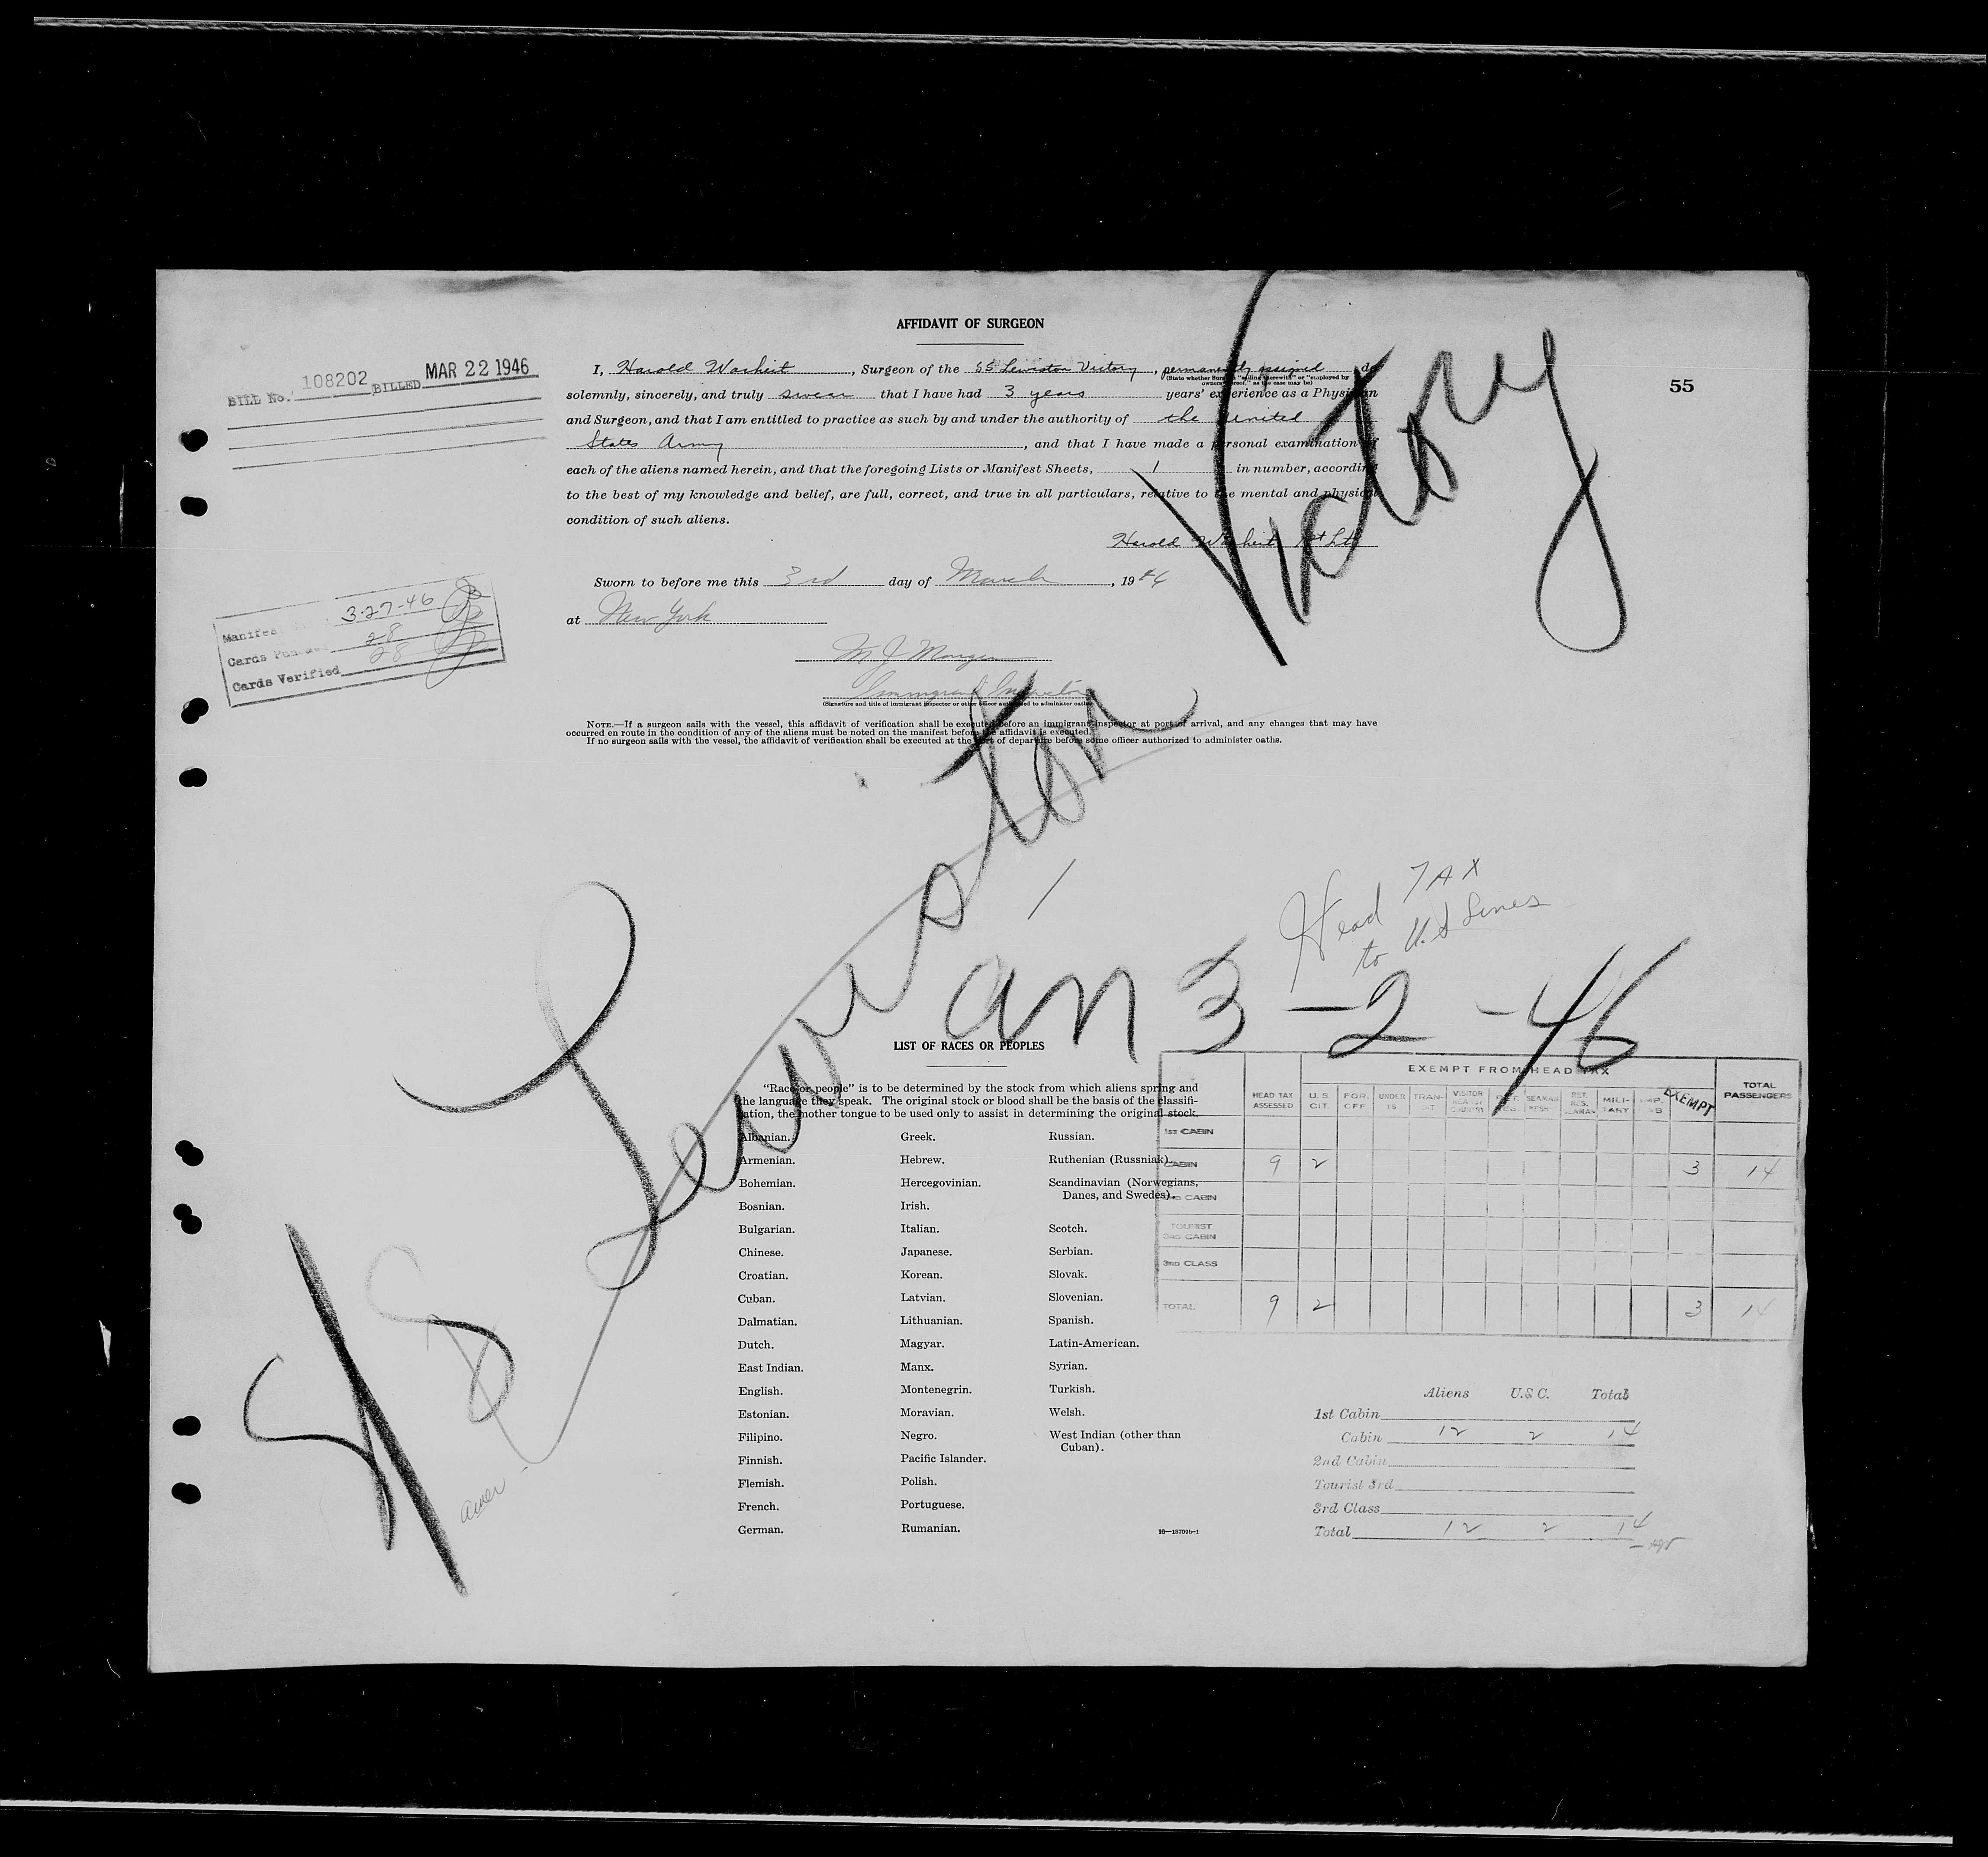 AFFIDAVIT OF SURGEON
BILL No. 108202 BILLED MAR 22 1946
55
I, Harold Warheit, Surgeon of the SS. Lewiston Victory, permanently assigned do
(State whether Surgeon "sailing therewith" or "employed by
owners thereof," as the case may be)
solemnly, sincerely, and truly swear that I have had 3 years years' experience as a Physician
and Surgeon, and that I am entitled to practice as such by and under the authority of the United
States Army, and that I have made a personal examination of
each of the aliens named herein, and that the foregoing Lists or Manifest Sheets, 1 in number, according
to the best of my knowledge and belief, are full, correct, and true in all particulars, relative to the mental and physical
condition of such aliens.
Harold Warheit 1st Lt
Sworn to before me this 3rd day of March, 1946
at New York
Immigrant Inspector
(Signature and title of immigrant inspector or other officer authorized to administer oaths)
Manifest 3-27-46
Cards Punched 28
Cards Verified 28
NOTE.—If a surgeon sails with the vessel, this affidavit of verification shall be executed before an immigrant inspector at port of arrival, and any changes that may have
occurred en route in the condition of any of the aliens must be noted on the manifest before the affidavit is executed.
If no surgeon sails with the vessel, the affidavit of verification shall be executed at the port of departure before some officer authorized to administer oaths.
SS Lewiston Victory
Head TAX
to U.S Lines
arr 3-2-46
LIST OF RACES OR PEOPLES
"Race or people" is to be determined by the stock from which aliens spring and
the language they speak. The original stock or blood shall be the basis of the classifi-
cation, the mother tongue to be used only to assist in determining the original stock.
Albanian. Greek. Russian.
Armenian. Hebrew. Ruthenian (Russniak).
Bohemian. Hercegovinian. Scandinavian (Norwegians,
Danes, and Swedes).
Bosnian. Irish.
Bulgarian. Italian. Scotch.
Chinese. Japanese. Serbian.
Croatian. Korean. Slovak.
Cuban. Latvian. Slovenian.
Dalmatian. Lithuanian. Spanish.
Dutch. Magyar. Latin-American.
East Indian. Manx. Syrian.
English. Montenegrin. Turkish.
Estonian. Moravian. Welsh.
Filipino. Negro. West Indian (other than
Cuban).
Finnish. Pacific Islander.
Flemish. Polish.
French. Portuguese.
German. Rumanian.
16—18700b-1
EXEMPT FROM HEAD TAX
HEAD TAX ASSESSED U.S. CIT. FOR. OFF UNDER 15 TRAN-SIT VISITOR SEAMAN RET. RES. SEAMAN MILI-TARY EXEMPT TOTAL PASSENGERS
1ST CABIN
CABIN 9 2 3 14
2ND CABIN
TOURIST
3RD CABIN
3RD CLASS
TOTAL 9 2 3 14
Aliens U.S.C. Total
1st Cabin
Cabin 12 2 14
2nd Cabin
Tourist 3rd
3rd Class
Total 12 2 14
amer